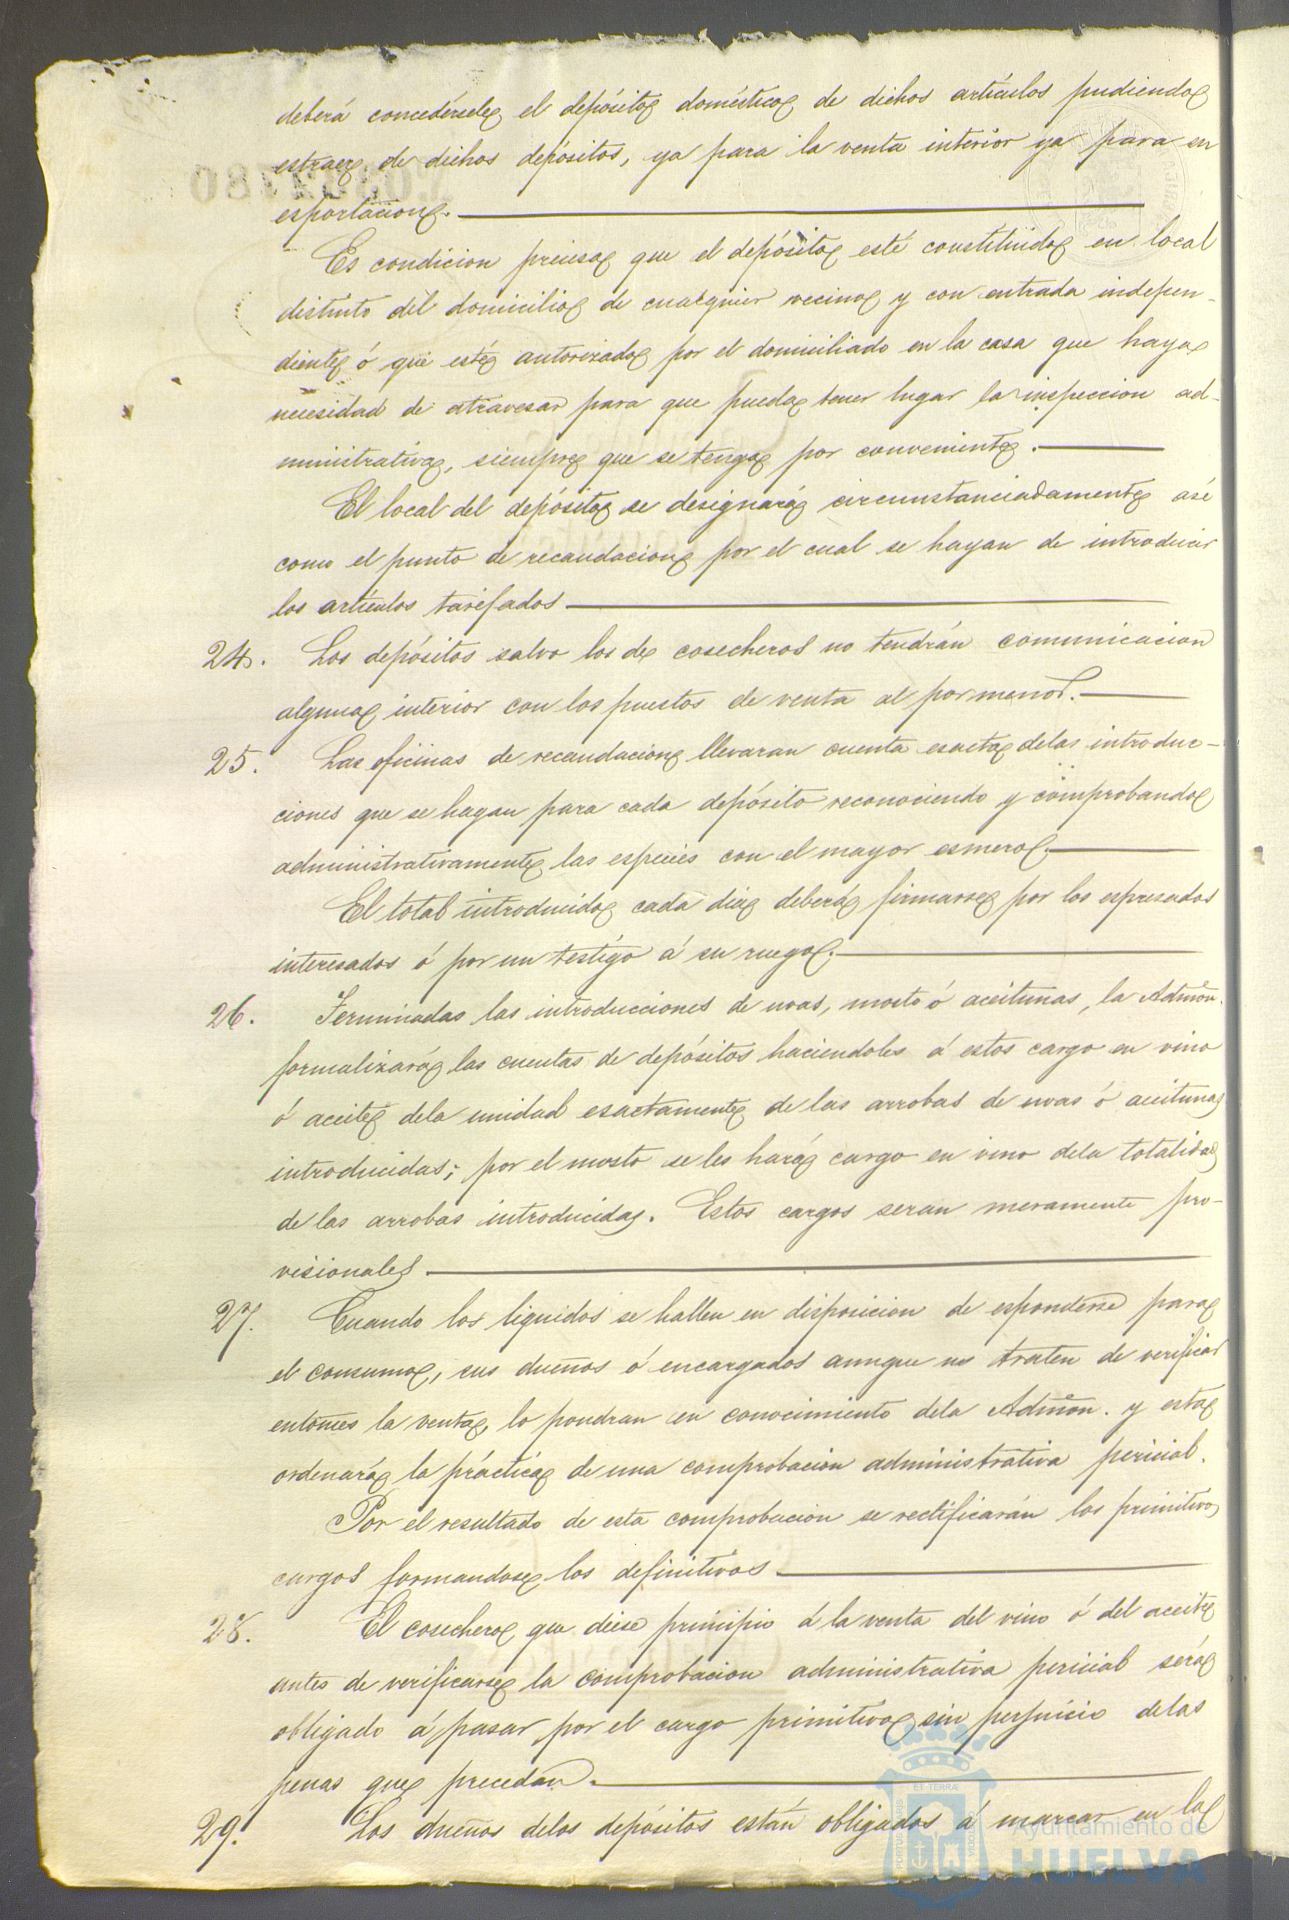 deberá concedérsele el depósito doméstico de dichos artículos pudiendo
estraer de dichos depósitos, ya para la venta interior ya para su
esportacion.
Es condicion precisa que el depósito esté constituido en local
distinto del domicilio de cualquier vecino y con entrada indepen-
diente ó que esté autorizado por el domiciliado en la casa que haya
necesidad de atravesar para que pueda tener lugar la inspeccion ad-
ministrativa, siempre que se tenga por conveniente.
El local del depósito se designará circunstanciadamente asi
como el punto de recaudacion por el cual se hayan de introducir
los artículos tarifados
24. Los depósitos salvo los de cosecheros no tendrán comunicacion
alguna interior con los puestos de venta al por menor.
25. Las oficinas de recaudacion llevaran cuenta esacta delas introduc-
ciones que se hagan para cada depósito reconociendo y comprobando
administrativamente las especies con el mayor esmero.
El total introducido cada dia deberá firmarse por los espresados
interesados ó por un testigo á su ruego.
26. Terminadas las introducciones de uvas, mosto ó aceitunas, la Admon.
formalizará las cuentas de depósitos haciendoles á estos cargo en vino
ó aceite dela unidad esactamente de las arrobas de uvas ó aceitunas
introducidas; por el mosto se les hará cargo en vino dela totalidad
de las arrobas introducidas. Estos cargos seran meramente pro-
visionales.
27. Cuando los liquidos se hallen en disposicion de esponderse para
el consumo, sus dueños ó encargados aunque no traten de verificar
entonces la venta, lo pondran en conocimiento dela Admon. y esta
ordenará la práctica de una comprobacion administrativa pericial.
Por el resultado de esta comprobacion se rectificarán los primitivos
cargos formandose los definitivos.
28. El cosechero que diese principio á la venta del vino ó del aceite
antes de verificarse la comprobacion administrativa pericial será
obligado á pasar por el cargo primitivo sin perjuicio delas
penas que precedan.
29. Los dueños delos depósitos están obligados á marcar en la
Ayuntamiento de
HUELVA